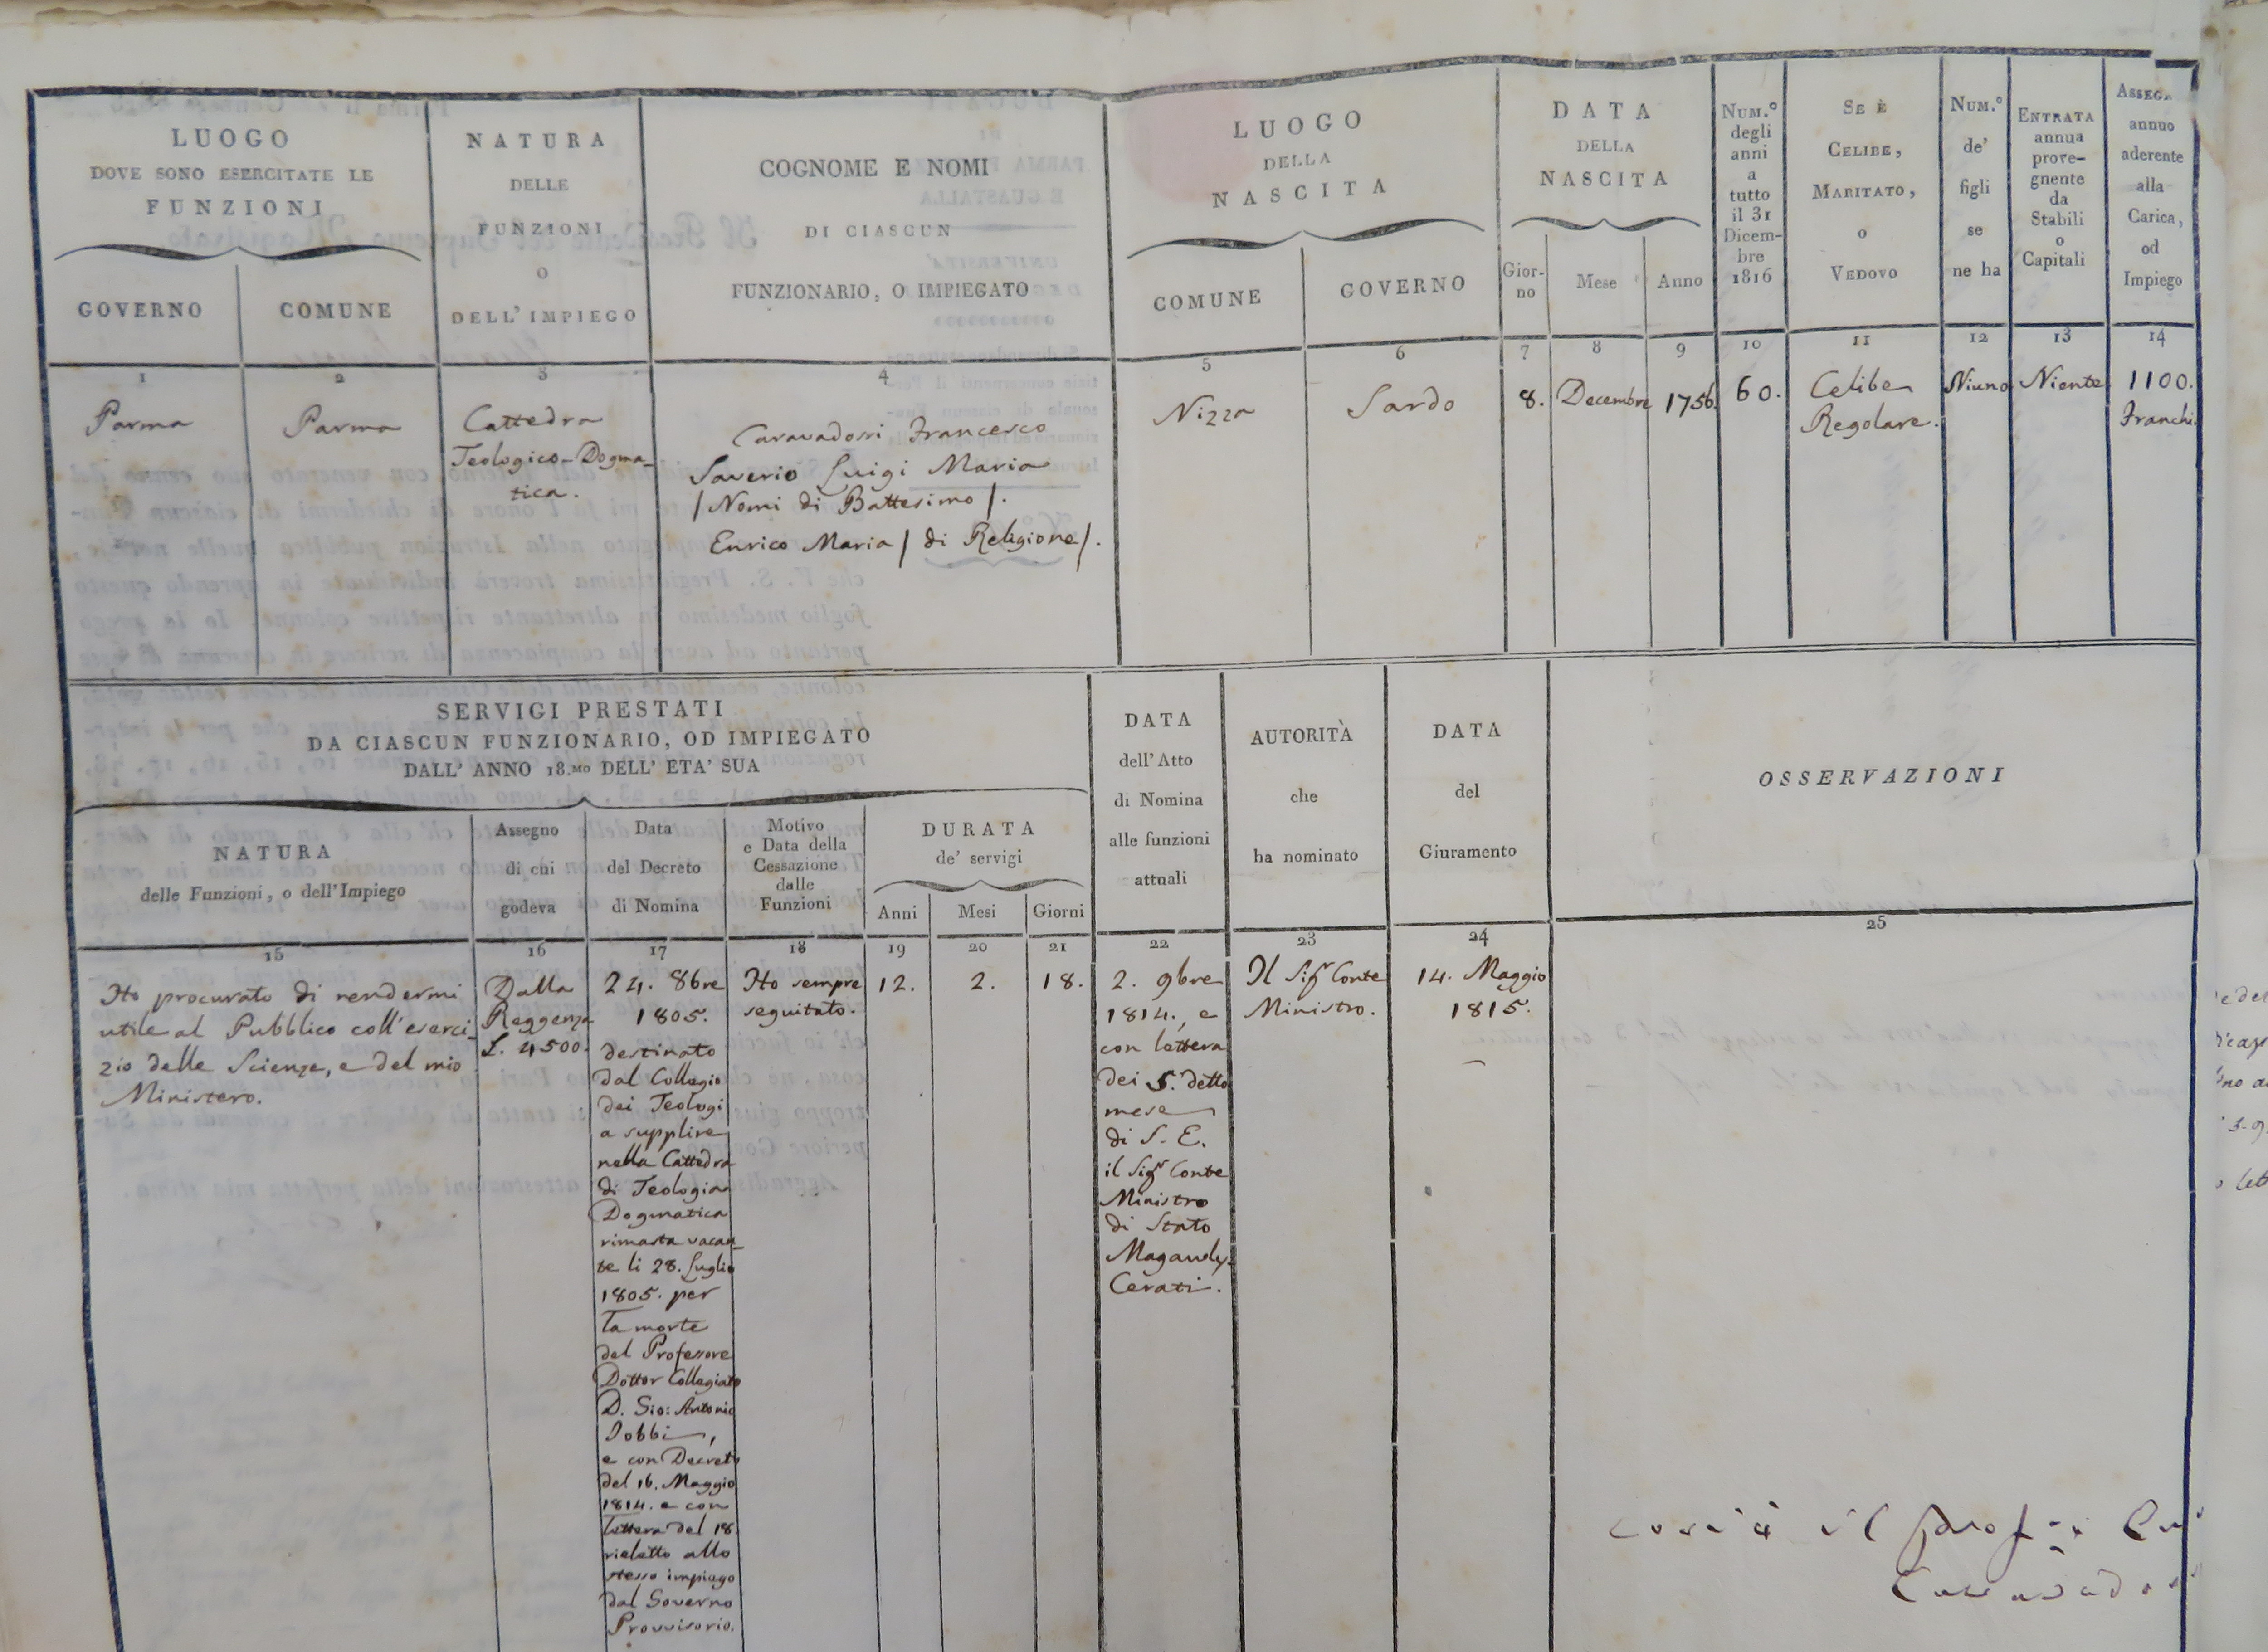 LUOGO
DOVE SONO ESERCITATE LE
FUNZIONI
GOVERNO
COMUNE
NATURA
DELLE
FUNZIONI
O
DELL'IMPIEGO
COGNOME E NOMI
DI CIASCUN
FUNZIONARIO, O IMPIEGATO
LUOGO
DELLA
NASCITA
COMUNE
GOVERNO
DATA
DELLA
NASCITA
Gior-
no
Mese
Anno
NUM.º
degli
anni
a
tutto
il 31
Dicem-
bre
1816
SE È
CELIBE,
MARITATO,
O
VEDOVO
NUM.º
de'
figli
se
ne ha
ENTRATA
annua
prove-
gnente
da
Stabili
o
Capitali
annuo
aderente
alla
Carica,
od
Impiego
1
2
3
4
5
6
7
8
9
10
11
12
13
14
Parma
Parma
Cattedra
Teologico-Dogma-
tica.
Caravadossi Francesco
Saverio Luigi Maria
/ Nomi di Battesimo /.
Enrico Maria / di Religione /.
Nizza
Sardo
8.
Decembre
1756.
60.
Celibe
Regolare.
Niuno
Niente
1100.
Franchi.
SERVIGI PRESTATI
DA CIASCUN FUNZIONARIO, OD IMPIEGATO
DALL' ANNO 18.MO DELL' ETA' SUA
NATURA
delle Funzioni, o dell'Impiego
Assegno
di cui
godeva
Data
del Decreto
di Nomina
Motivo
e Data della
Cessazione
dalle
Funzioni
DURATA
de' servigi
Anni
Mesi
Giorni
DATA
dell'Atto
di Nomina
alle funzioni
attuali
AUTORITÀ
che
ha nominato
DATA
del
Giuramento
OSSERVAZIONI
15
16
17
18
19
20
21
22
23
24
25
Ho procurato di rendermi
utile al Pubblico coll'eserci-
zio delle Scienze, e del mio
Ministero.
Dalla
Reggenza
L. 4500.
24. 8bre
1805.
destinato
dal Collegio
dei Teologi
a supplire
nella Cattedra
di Teologia
Dogmatica
rimasta vacan-
te li 28. Luglio
1805. per
la morte
del Professore
Dottor Collegiato
D. Gio: Antonio
Gobbi,
e con Decreto
del 16. Maggio
1814. e con
lettera del 18
rieletto allo
stesso impiego
dal Governo
Provvisorio.
Ho sempre
seguitato.
12.
2.
18.
2. 9bre
1814., e
con lettera
dei 5. detto
mese
di S. E.
il Sigr Conte
Ministro
di Stato
Magawly-
Cerati.
Il Sigr Conte
Ministro.
14. Maggio
1815.